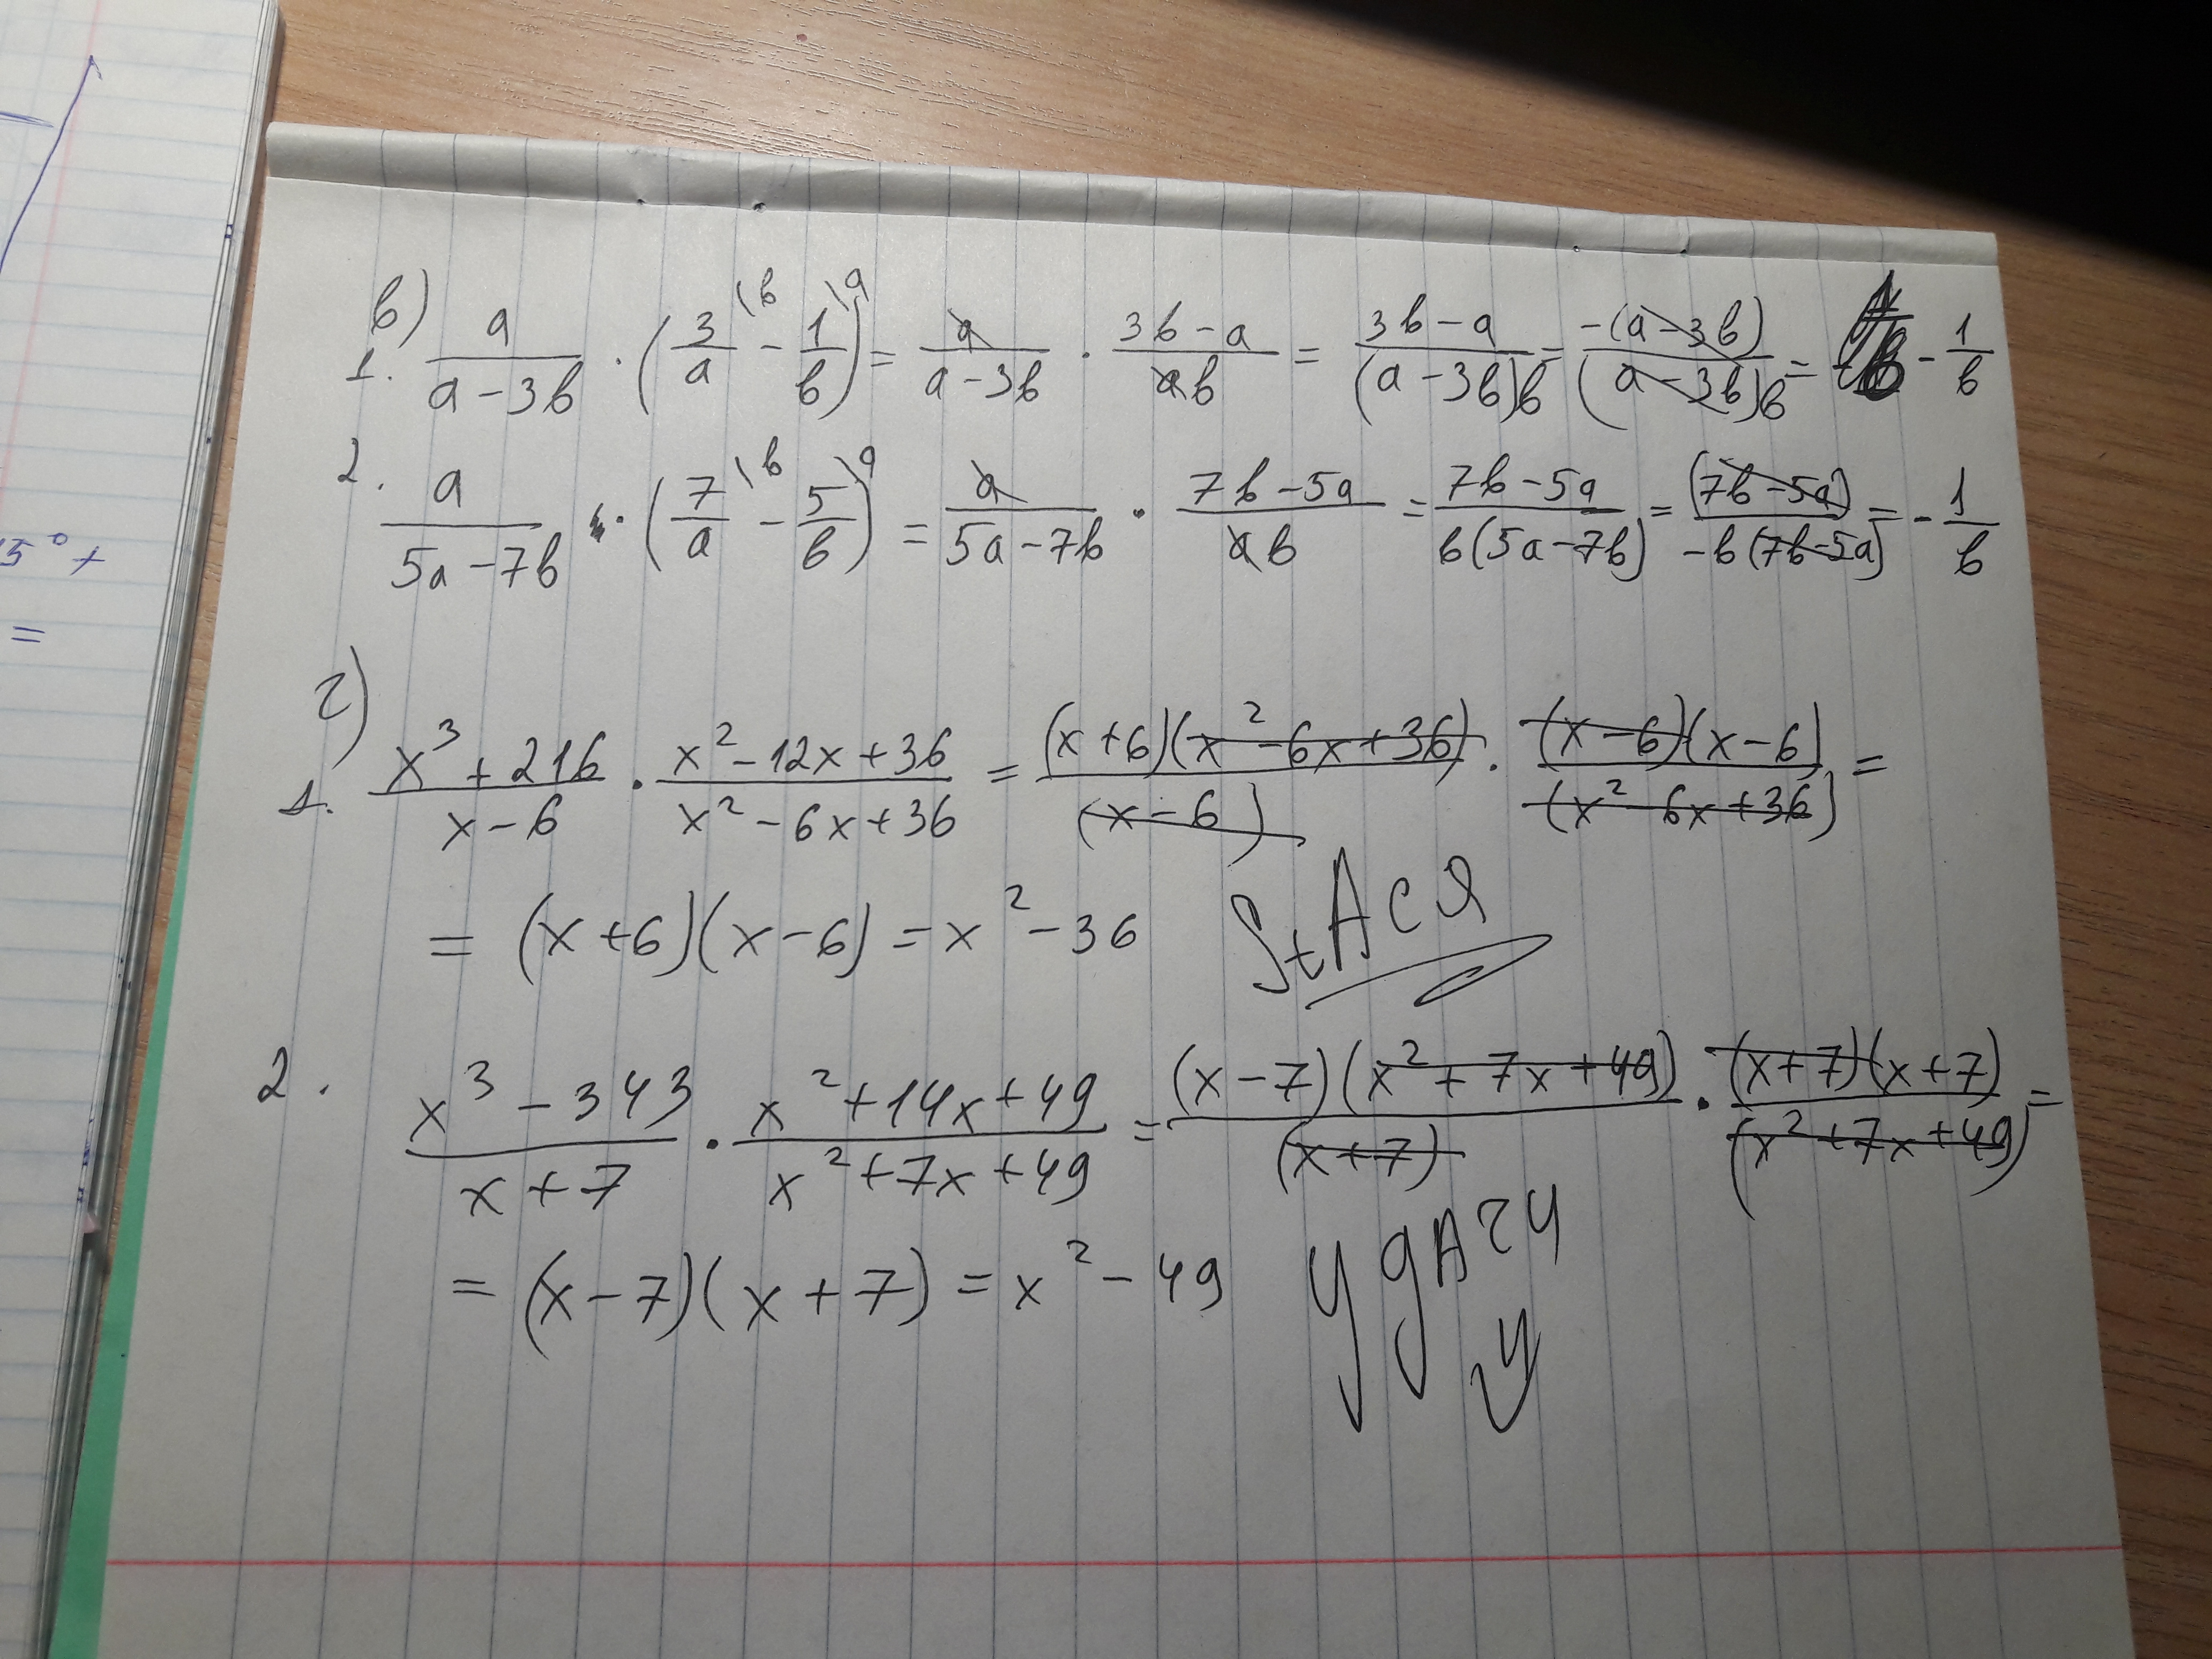 в)
1. a/(a-3b) · (3/a \b - 1/b \a) = a/(a-3b) · (3b-a)/(ab) = (3b-a)/((a-3b)b) = -(a-3b)/((a-3b)b) = - 1/b
2. a/(5a-7b) · (7/a \b - 5/b \a) = a/(5a-7b) · (7b-5a)/(ab) = (7b-5a)/(b(5a-7b)) = (7b-5a)/(-b(7b-5a)) = - 1/b
г)
1. (x³+216)/(x-6) · (x²-12x+36)/(x²-6x+36) = (x+6)(x²-6x+36)/(x-6) · (x-6)(x-6)/(x²-6x+36) =
= (x+6)(x-6) = x²-36
StAся
2. (x³-343)/(x+7) · (x²+14x+49)/(x²+7x+49) = (x-7)(x²+7x+49)/(x+7) · (x+7)(x+7)/(x²+7x+49) =
= (x-7)(x+7) = x²-49
удАчи
5° +
=